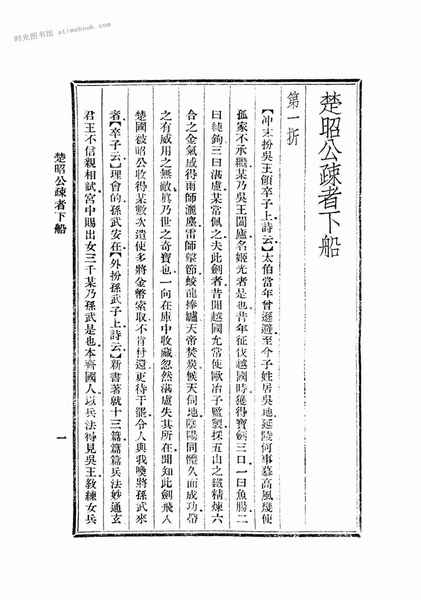 时光图书馆 atimebook.com
楚昭公疎者下船
第一折
【冲末扮吳王領卒子上詩云】太伯當年曾遜避至今子姓居吳地延陵何事慕高風幾使
孤家不承繼某乃吳王闔廬名姬光者是也昔年征伐越國時獲得寶劍三口一曰魚腸二
曰純鉤三曰湛盧某常佩之夫此劍者昔聞越國允常使歐冶子監製採五山之鐵精煉六
合之金氣感得雨師灑塵雷師擊節蛟龍捧爐天帝焚炭候天伺地陰陽同體久而成功帶
之有威用之無敵真乃世之奇寶也一向在庫中收藏忽然湛盧失其所在聞知此劍飛入
楚國被昭公收得某數次遣使多將金幣索取不肯付還更待干罷令人與我喚將孫武來
者【卒子云】理會的孫武安在【外扮孫武子上詩云】新書著就十三篇篇篇兵法妙通玄
君王不信親相試宮中賜出女三千某乃孫武是也本齊國人以兵法得見吳王教練女兵
楚昭公疎者下船
一